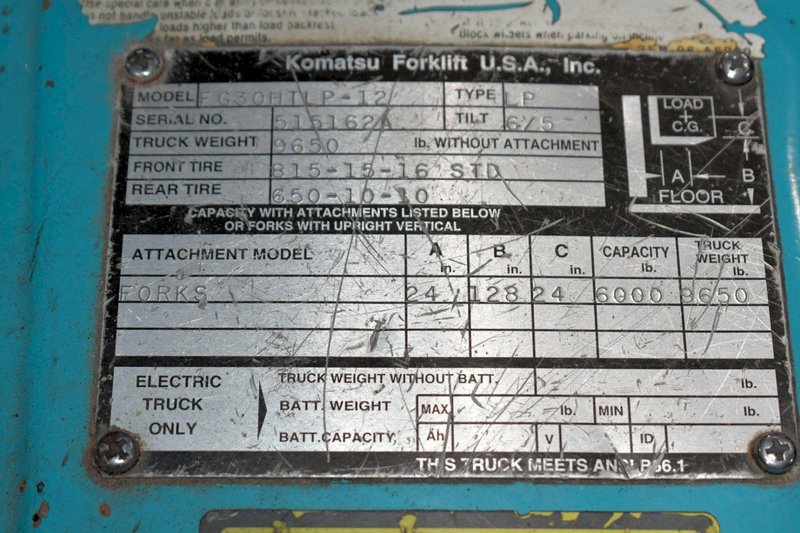 do not handle unstable
loads higher than load backrest.
far as load permits.
Block wheels when parking on incline
Komatsu Forklift U.S.A., Inc.
MODEL FG30HTLP-12 TYPE LP
SERIAL NO. 515162A TILT 6/5
TRUCK WEIGHT 9650 lb. WITHOUT ATTACHMENT
FRONT TIRE 815-15-16 STD
REAR TIRE 650-10-10
LOAD
+
C.G.
C
A B
FLOOR
CAPACITY WITH ATTACHMENTS LISTED BELOW
OR FORKS WITH UPRIGHT VERTICAL
ATTACHMENT MODEL A in. B in. C in. CAPACITY lb. TRUCK WEIGHT lb.
FORKS 24 128 24 6000 9650
ELECTRIC
TRUCK
ONLY
TRUCK WEIGHT WITHOUT BATT. lb.
BATT. WEIGHT MAX lb. MIN lb.
BATT. CAPACITY Ah V ID
THIS TRUCK MEETS ANSI B56.1